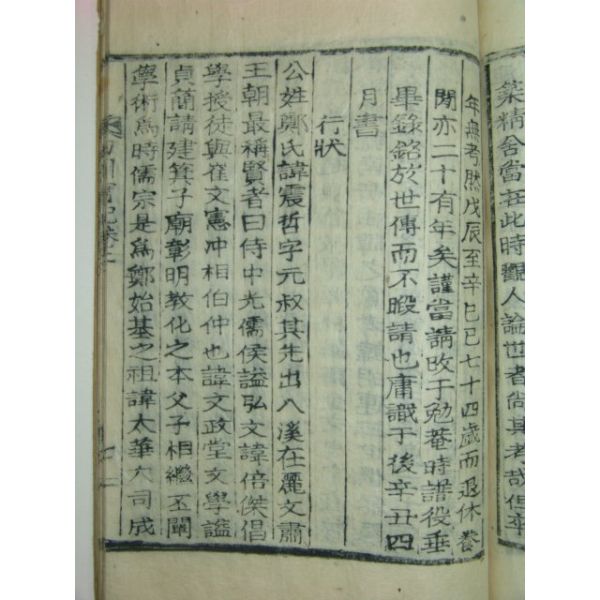 築精舍當在此時觀人論世者尙其考哉但卒
年無考然戊辰至辛巳巳七十四歲而退休養
閒亦二十有年矣謹當請改于勉菴時譜役垂
畢錄銘於世傳而不暇請也庸識于後辛丑四
月書
行狀
公姓鄭氏諱震哲字元叔其先出八溪在麗文肅
王朝最稱賢者曰侍中光儒侯諡弘文諱倍傑倡
學授徒與崔文憲冲相伯仲也諱文政堂文學諡
貞簡請建箕子廟彰明教化之本父子相繼丕闡
學術爲時儒宗是爲鄭始基之祖諱太華大司成